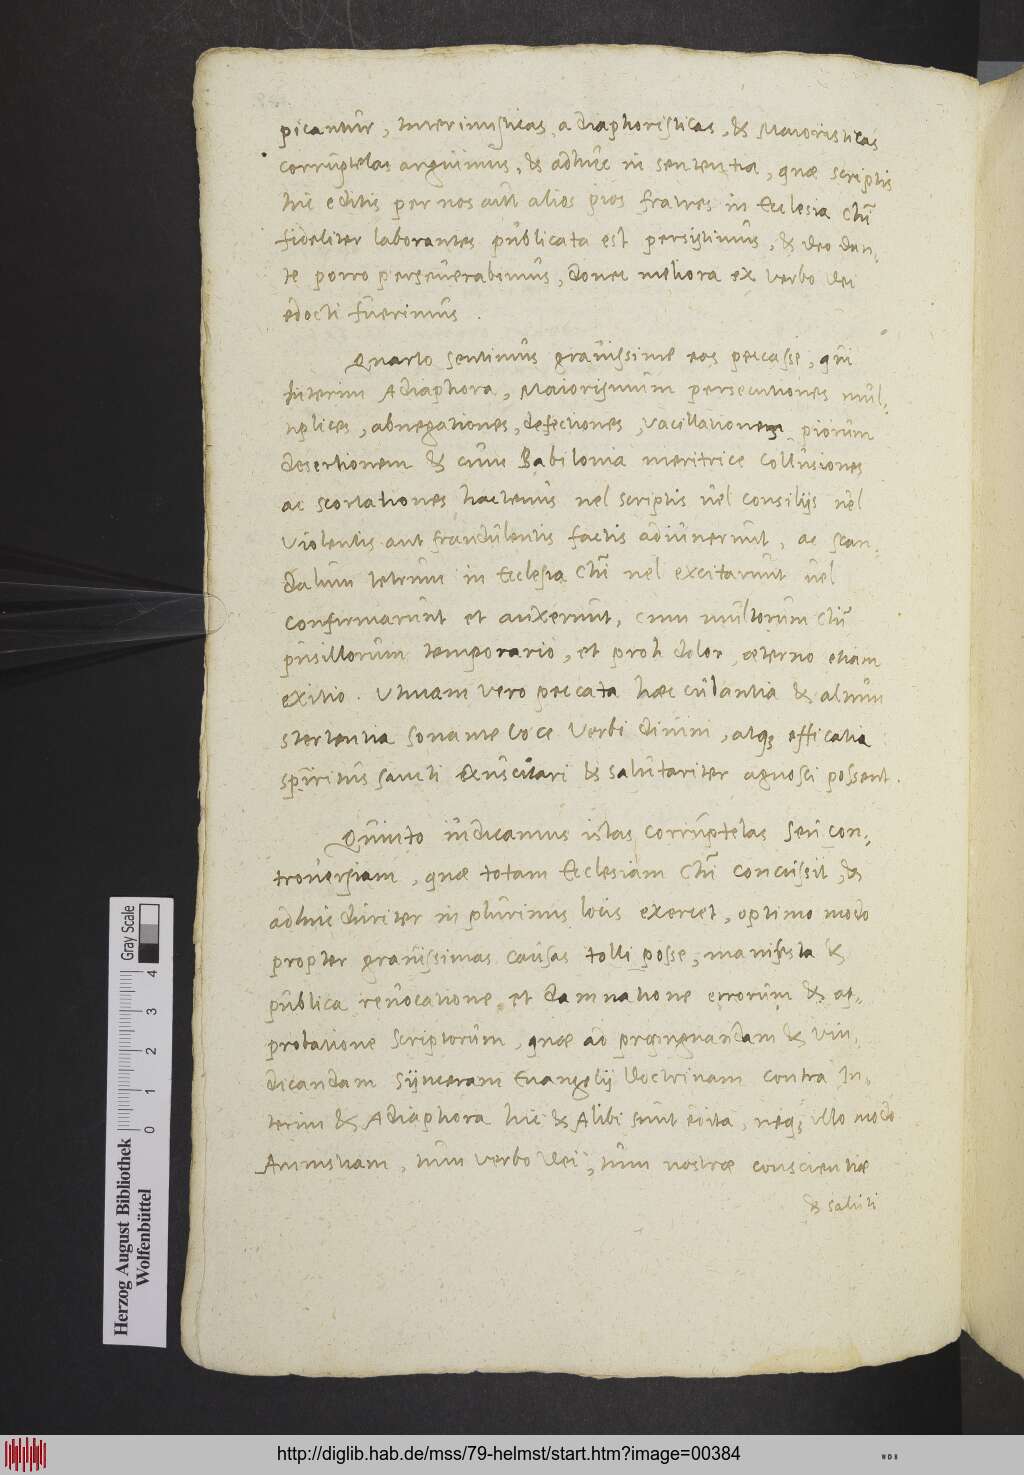 picantur, Interimisticas, adiaphoristicas, & Maioristicas
corruptelas arguimus, & adhuc in sententia, quae scriptis
hic editis per nos aut alios pios fratres in Ecclesia Chri
fideliter laborantes publicata est persistimus, & deo dan-
te porro perseuerabimus, donec meliora ex verbo dei
edocti fuerimus.
Quarto sentimus grauissime eos peccasse, qui
Interim Adiaphora, Maiorismum persecutiones mul-
tiplices, abnegationes, defectiones, vacillationem, piorum
desertionem & cum Babilonia meritrice collusiones
ac scortationes hactenus uel scriptis uel consilijs uel
violentis aut fraudulentis factis adiuuerunt, ac scan-
dalum tetrum in Ecclesia Chri uel excitarunt uel
confirmarunt et auxerunt, cum multorum Chri
pusillorum temporario, et proh dolor, aeterno etiam
exitio. Utinam vero peccata haec
stertentia sonante voce Verbi diuini, atq; efficatia
spiritus sancti exuscitari & salutariter agnosci possent.
Quinto iudicamus istas corruptelas seu con-
trouersiam, quae totam Ecclesiam Chri concussit, &
adhuc duriter in plurimis locis exercet, optimo modo
propter grauissimas causas tolli posse, manifesta &
publica reuocatione, et damnatione errorum & ap-
probatione scriptorum, quae ad propugnandam & vin-
dicandam synceram Euangelij Doctrinam contra In-
terim & Adiaphora hic & Alibi sunt edita, neq; ullo modo
Amnistiam, tum verbo Dei, tum nostrae conscientiae
& saluti
Gray Scale
0 1 2 3 4
Herzog August Bibliothek
Wolfenbüttel
http://diglib.hab.de/mss/79-helmst/start.htm?image=00384